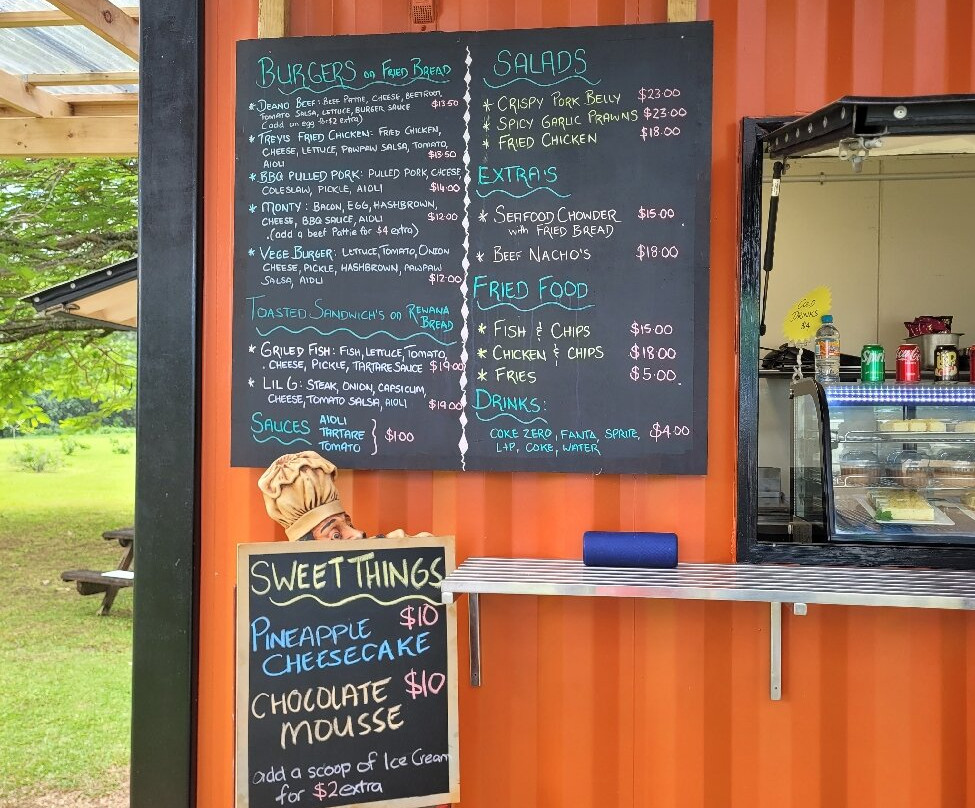 BURGERS on FRIED BREAD
* DEANO BEEF: BEEF PATTIE, CHEESE, BEETROOT,
TOMATO SALSA, LETTUCE, BURGER SAUCE $13.50
(add an egg for $2 extra)
* TREVIS FRIED CHICKEN: FRIED CHICKEN,
CHEESE, LETTUCE, PAWPAW SALSA, TOMATO,
AIOLI $13.50
* BBQ PULLED PORK: PULLED PORK, CHEESE
COLESLAW, PICKLE, AIOLI $14.00
* MONTY: BACON, EGG, HASHBROWN,
CHEESE, BBQ SAUCE, AIOLI $12.00
(add a beef Pattie for $4 extra)
* VEGE BURGER: LETTUCE, TOMATO, ONION
CHEESE, PICKLE, HASHBROWN, PAWPAW
SALSA, AIOLI $12.00
TOASTED SANDWICH'S on REWANA
BREAD
* GRILED FISH: FISH, LETTUCE, TOMATO,
CHEESE, PICKLE, TARTARE SAUCE $19.00
* LIL G: STEAK, ONION, CAPSICUM,
CHEESE, TOMATO SALSA, AIOLI $19.00
SAUCES AIOLI
TARTARE $1.00
TOMATO
SALADS
* CRISPY PORK BELLY $23.00
* SPICY GARLIC PRAWNS $23.00
* FRIED CHICKEN $18.00
EXTRA'S
* SEAFOOD CHOWDER $15.00
with FRIED BREAD
* BEEF NACHO'S $18.00
FRIED FOOD
* FISH & CHIPS $15.00
* CHICKEN & CHIPS $18.00
* FRIES $5.00
DRINKS:
COKE ZERO, FANTA, SPRITE, $4.00
L+P, COKE, WATER
COLD
DRINKS
$4
SWEET THINGS
$10
PINEAPPLE
CHEESECAKE
CHOCOLATE $10
MOUSSE
add a scoop of Ice Cream
for $2 extra